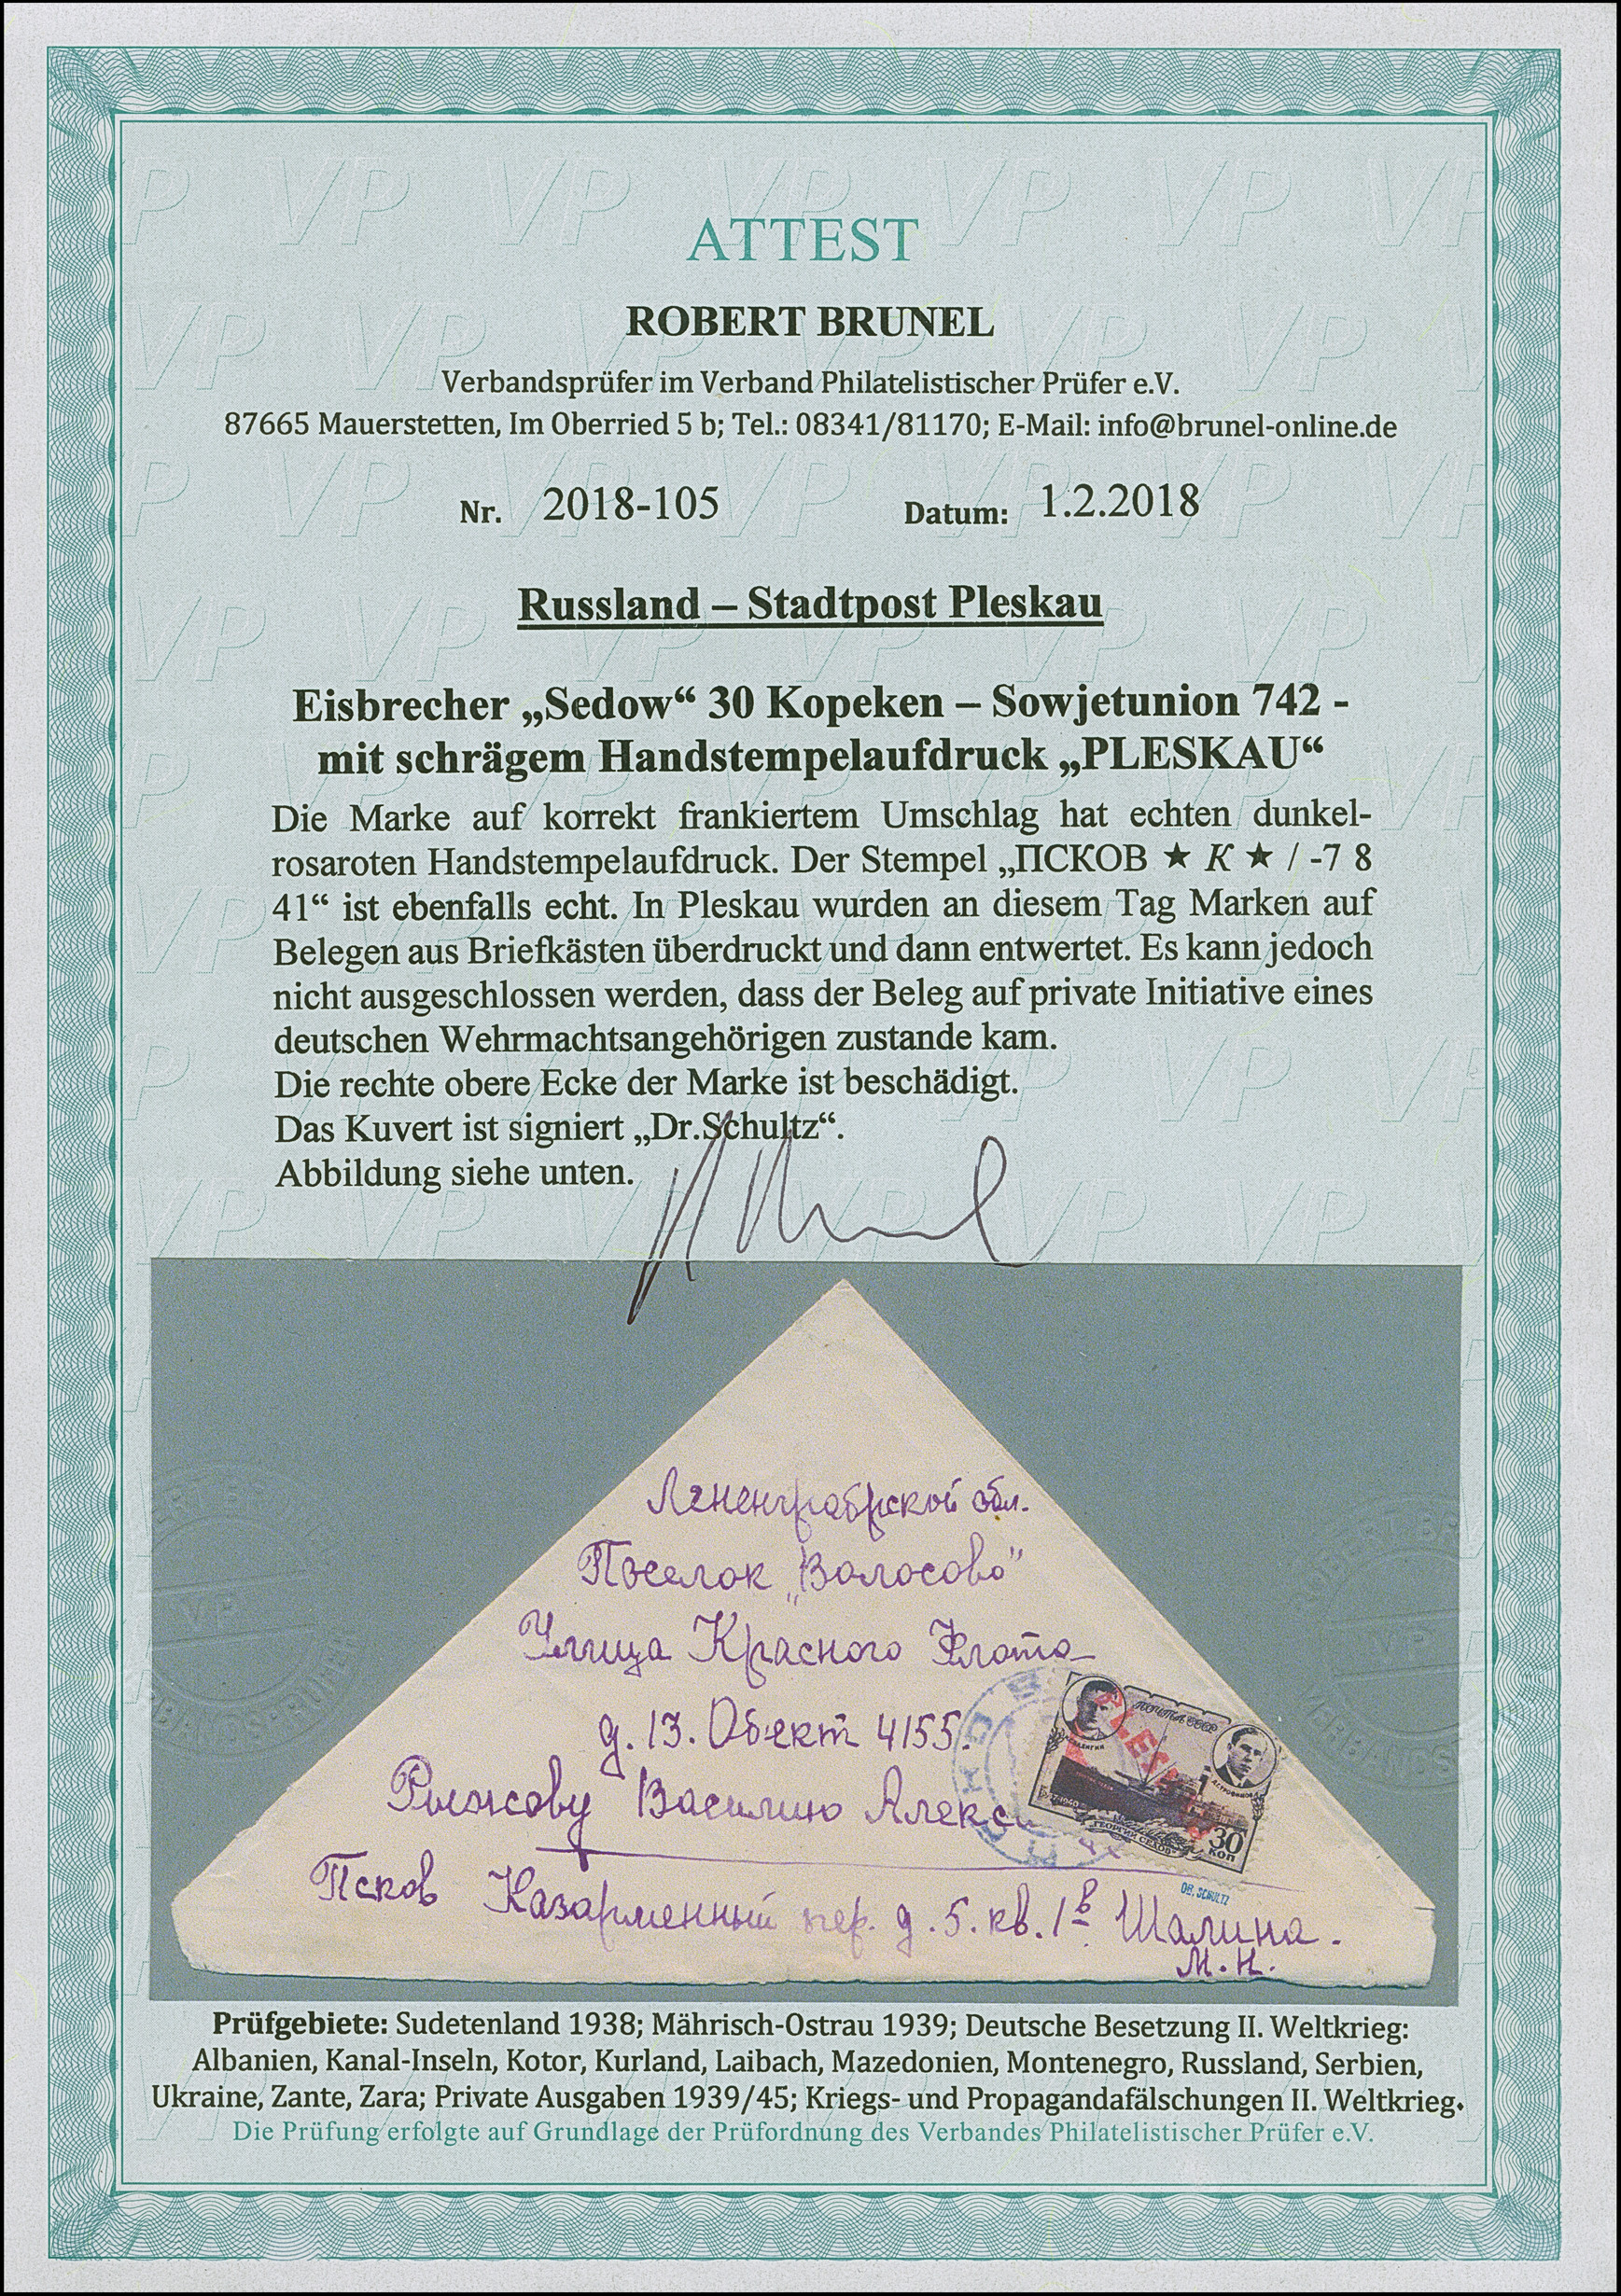 ATTEST
ROBERT BRUNEL
Verbandsprüfer im Verband Philatelistischer Prüfer e.V.
87665 Mauerstetten, Im Oberried 5 b; Tel.: 08341/81170; E-Mail: info@brunel-online.de
Nr. 2018-105 Datum: 1.2.2018
Russland – Stadtpost Pleskau
Eisbrecher „Sedow“ 30 Kopeken – Sowjetunion 742 -
mit schrägem Handstempelaufdruck „PLESKAU“
Die Marke auf korrekt frankiertem Umschlag hat echten dunkel-
rosaroten Handstempelaufdruck. Der Stempel „ПСКОВ ★ К ★ / -7 8
41“ ist ebenfalls echt. In Pleskau wurden an diesem Tag Marken auf
Belegen aus Briefkästen überdruckt und dann entwertet. Es kann jedoch
nicht ausgeschlossen werden, dass der Beleg auf private Initiative eines
deutschen Wehrmachtsangehörigen zustande kam.
Die rechte obere Ecke der Marke ist beschädigt.
Das Kuvert ist signiert „Dr.Schultz“.
Abbildung siehe unten.
Ленинградской обл.
Поселок „Волосово"
Улица Красного Флота
д. 13. Обект 4155.
ПОЧТА СССР
Рыжсову Василию Алекс
"ГЕОРГИЙ СЕДОВ"
30
КОП
DR. SCHULTZ
Псков Казарменный пер. д. 5. кв. 1в Шалина.
М. Н.
Prüfgebiete: Sudetenland 1938; Mährisch-Ostrau 1939; Deutsche Besetzung II. Weltkrieg:
Albanien, Kanal-Inseln, Kotor, Kurland, Laibach, Mazedonien, Montenegro, Russland, Serbien,
Ukraine, Zante, Zara; Private Ausgaben 1939/45; Kriegs- und Propagandafälschungen II. Weltkrieg.
Die Prüfung erfolgte auf Grundlage der Prüfordnung des Verbandes Philatelistischer Prüfer e.V.